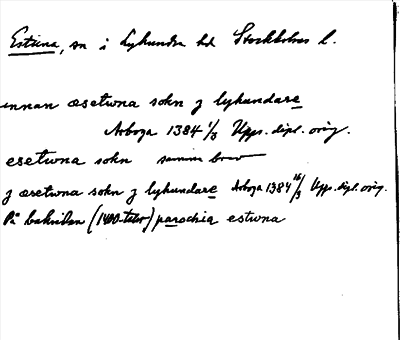 Estuna, sn i Lyhundra hd Stockholms l.
innan æsetwna sokn z lyhundare
Arboga 1384 1/3 Upps. dipl. orig.
esetwna sokn samma brev
z æsetwna sokn z lyhundare Arboga 1384 16/3 Upps. dipl. orig.
På baksidan (1400-talet) parochia estwna